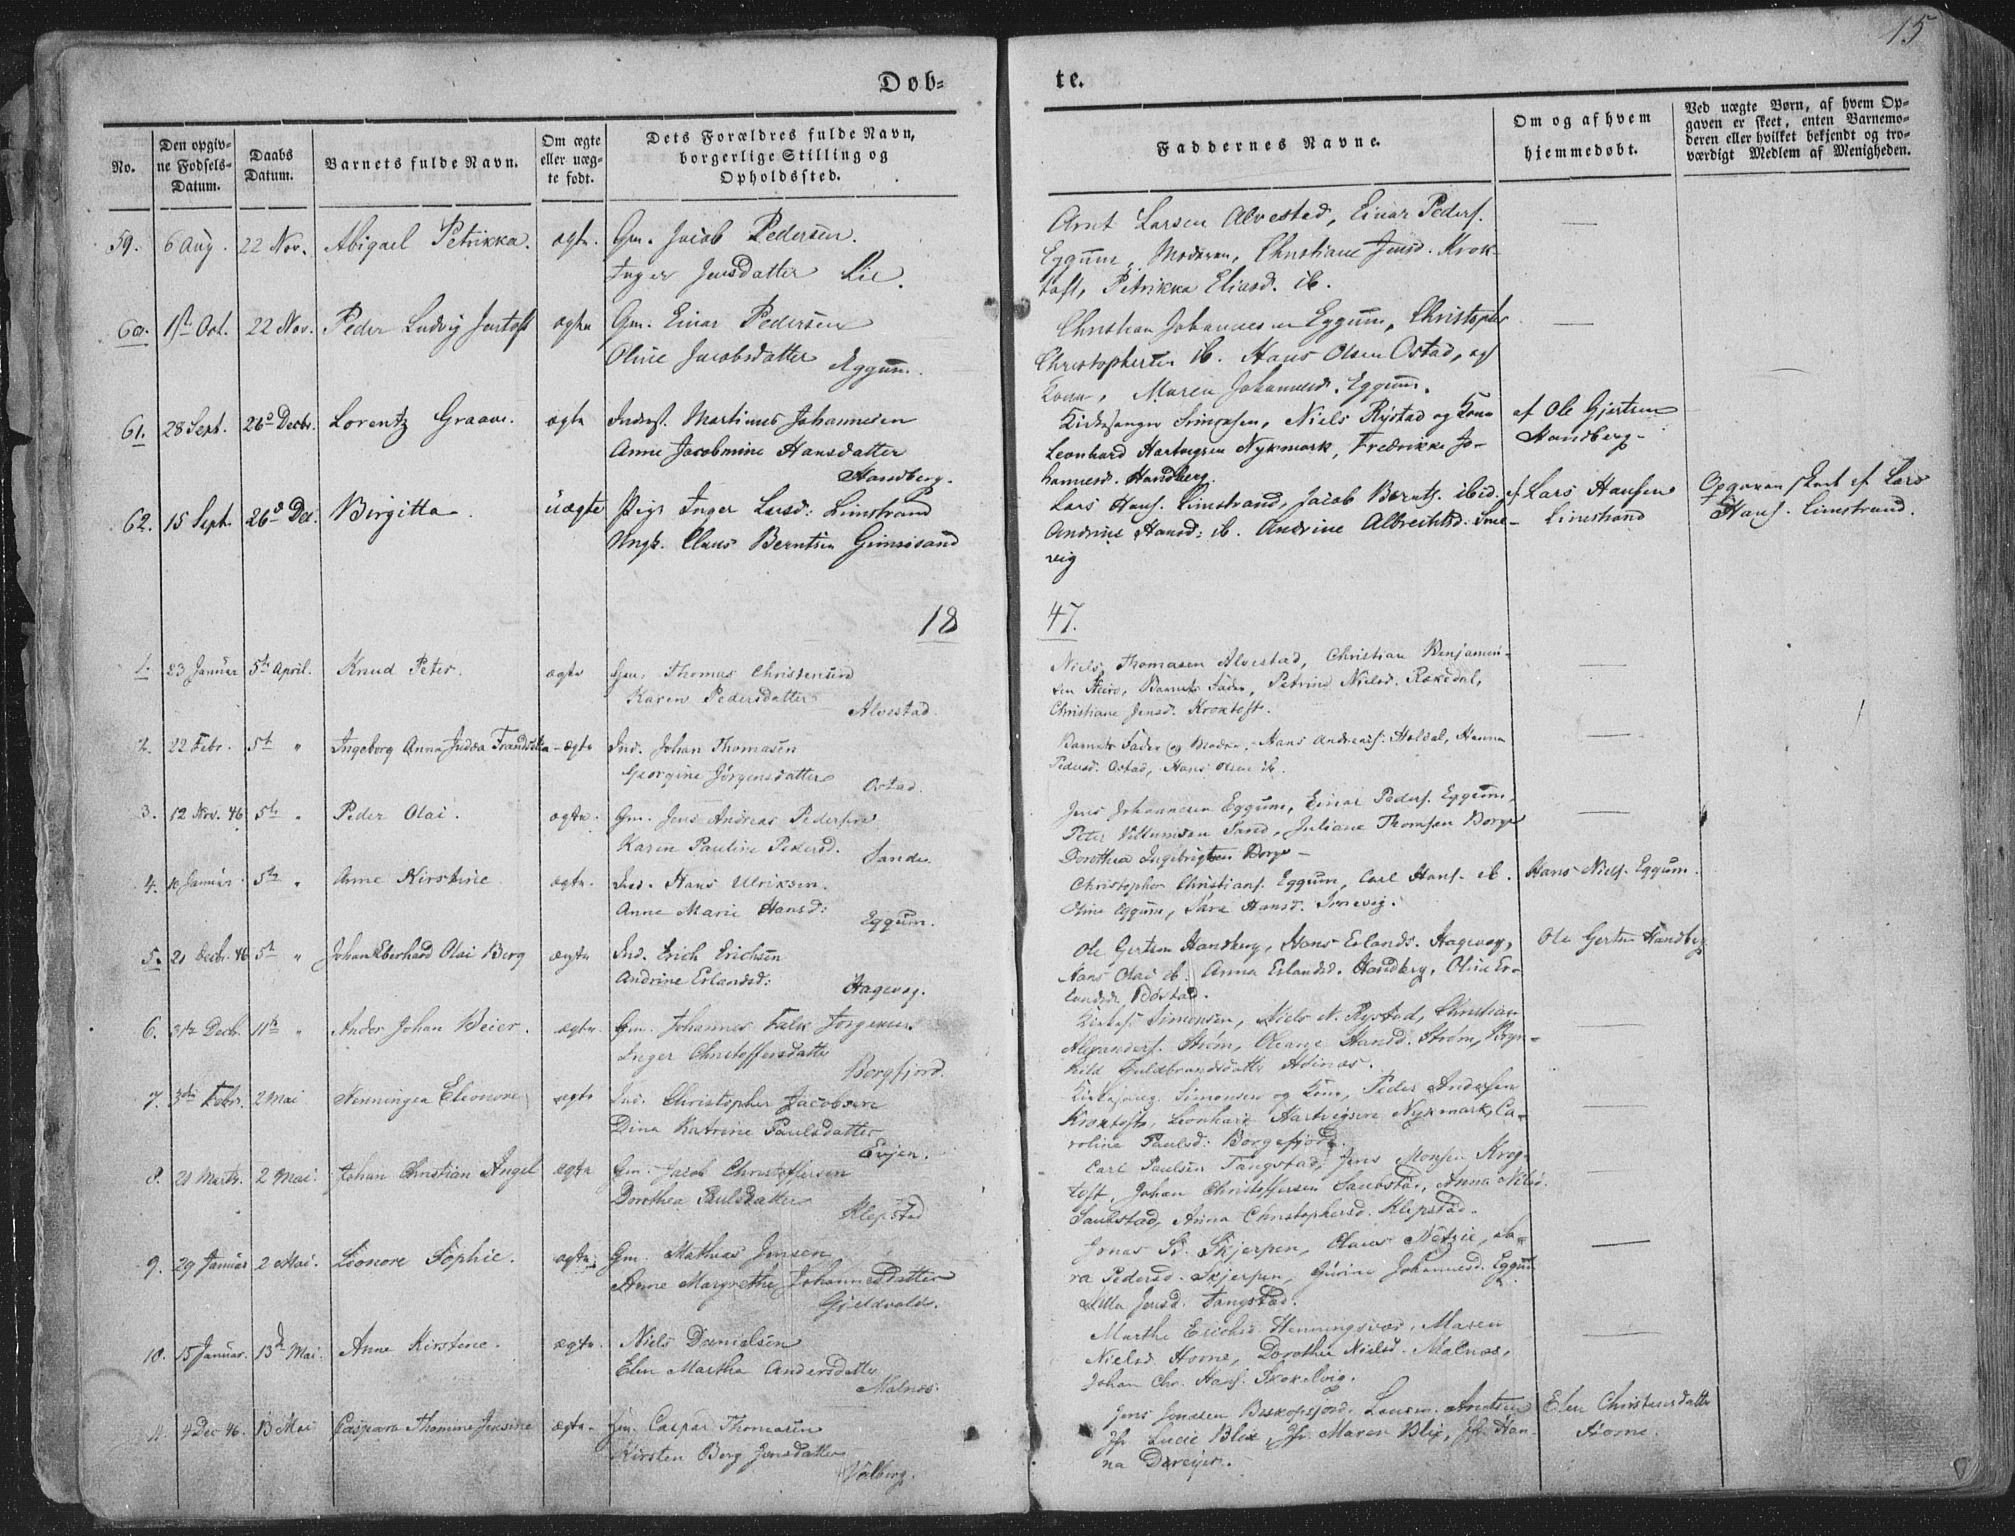 15
Døb-
te.
No.
Den opgiv-
ne Fødsels-
Datum.
Daabs
Datum.
Barnets fulde Navn.
Om ægte
eller uæg-
te født.
Dets Forældres fulde Navn,
borgerlige Stilling og
Opholdssted.
Faddernes Navne.
Om og af hvem
hjemmedøbt.
Ved uægte Børn, af hvem Op-
gaven er skeet, enten Barnemo-
deren eller hvilket bekjendt og tro-
værdigt Medlem af Menigheden.
59. 6 Aug. 22 Nov. Abigael Petrikka. ægte. Gm. Jacob Pedersen.
Inger Jensdatter Lie.
Arnt Larsen Alvestad, Einar Peders.
Eggum, Moderen, Christiane Jensd. Krok-
toft, Petrikka Eliasd. ib.
60. 1ste Oct. 22 Nov. Peder Ludvig Jentoft ægte Gm. Einar Pedersen
Oline Jacobsdatter Eggum.
Christian Johannesen Eggum, Christopher
Christophersen ib. Hans Olsen Ostad, og
Kona, Maren Johannesd. Eggum.
61. 28 Sept. 26de Decbr. Lorentz Graave. ægte Inderst. Martinus Johannesen
Anne Jacobmine Hansdatter
Handberg.
Kirkesanger Simonsen, Niels Rystad og Kona
Leonhard Hartvigsen Nykmark, Fredrikke Jo-
hannesd. Handberg.
af Ole Gjertsen
Handberg.
62. 15 Sept. 26de Dec. Birgitta. uægte Pige Inger Larsd: Limstrand
Ungk. Claus Berntsen Gimsøsand
Lars Hans. Limstrand, Jacob Bernts. ibid.
Andrine Hansd: ib. Andrine Albrechtsd. Sme-
vig
af Lars Hansen
Limstrand
Opgaven skeet af Lars
Hans. Limstrand.
18
47.
1. 23 Januar 5te April. Knud Peter. ægte Gm. Thomas Christensen
Karen Pedersdatter
Alvestad.
Niels Thomasen Alvestad, Christian Benjamin-
sen Barnets Fader, Petrine Nielsd.
Christiane Jensd. Kroktoft.
2. 22 Febr. 5te " Ingeborg Anna Judæa Frandsiska ægte Ind. Johan Thomasen
Georgine Jörgensdatter
Ostad.
Barnets Fader og Moder, Hans Andreas. Holdal, Hanna
Pedersd. Ostad, Hans Olsen ib.
3. 12 Nov. 46 5te " Peder Olai. ægte. Gm. Jens Andreas Pedersen
Karen Pauline Pedersd.
Sande.
Jens Johannesen Eggum, Einar Peders. Eggum,
Peter Villumsen Sand, Juliane Thomsen Borge
Dorothea Ingebrigtsen Borge
4. 10 Januar 5te " Anne Kirstine ægte. Ind. Hans Ulriksen.
Anne Marie Hansd:
Eggum.
Christopher Christians. Eggum, Carl Hans. ib.
Oline Eggum, Sara Hansd. Smevig.
Hans Niels. Eggum.
5. 21 Decbr. 46 5te " Johan Eberhard Olai Berg ægte Ind. Erich Erichsen
Andrine Erlandsd:
Hagevog.
Ole Gertsen Handberg, Hans Erlands. Hagevog,
Hans Olai ib. Anna Erlandsd. Handberg, Oline Er-
landsd. Bøstad.
Ole Gertsen Handberg
6. 31te Decbr. 11te " Ander Johan Beier. ægte. Gm. Johannes Falk Jorgensen
Inger Christoffersdatter
Borgfjord.
Kirkes. Simonsen, Niels N. Rystad, Christian
Alexanders. Strøm, Oleane Hansd. Strøm, Ragn-
hild Guldbrandsdatter
7. 3die Febr. 2 Mai Nenningea Eleonore ægte Ind. Christopher Jacobsen
Dina Katrine Paulsdatter
Evjen.
Kirkesang. Simonsen og Kone, Peder Andersen
Kroktoft, Leonhard Hartvigsen Nykmark, Ca-
roline Paulsd: Borgefjord.
8. 21 Marts. 2 Mai. Johan Christian Angel ægte Gm. Jacob Christoffersen
Dorothea Paulsdatter
Klepstad
Carl Paulsen Tangstad, Jens Monsen Krog-
toft, Johan Christoffersen Saubstad, Anna Nilsd.
Saubstad, Anna Christophersd. Klepstad.
9. 29 Januar 2 Mai. Leonore Sophie. ægte. Gm. Mathias Jensen
Anne Margrethe Johannesdatter
Jonas B. Skjerpen, Claus Netzie, Sa-
ra Pedersd. Skjerpen, Gurine Johannesd. Eggum
Jensd. Tangstad.
10. 15 Januar. 13de Mai. Anne Kirstine. ægte. Niels Danielsen
Elen Martha Andersdatter
Malnæs.
Marthe Erichsd. Henningsvær, Maren
Nielsd. Horne, Dorothea Nielsd. Malnæs,
Johan Chr. Hans.
11. 4 Dec 46. 13 Mai Caspara Thomine Jensine ægte. Gm. Caspar Thomasen
Kirsten Berg Jensdatter
Valberg.
Jens Jonasen Biskopsjord, Arntsen
Jfr Lucie Blix, Jfr Maren Blix, Jfr Han-
na Dreyer.
Elen Christensdatter
Horne.